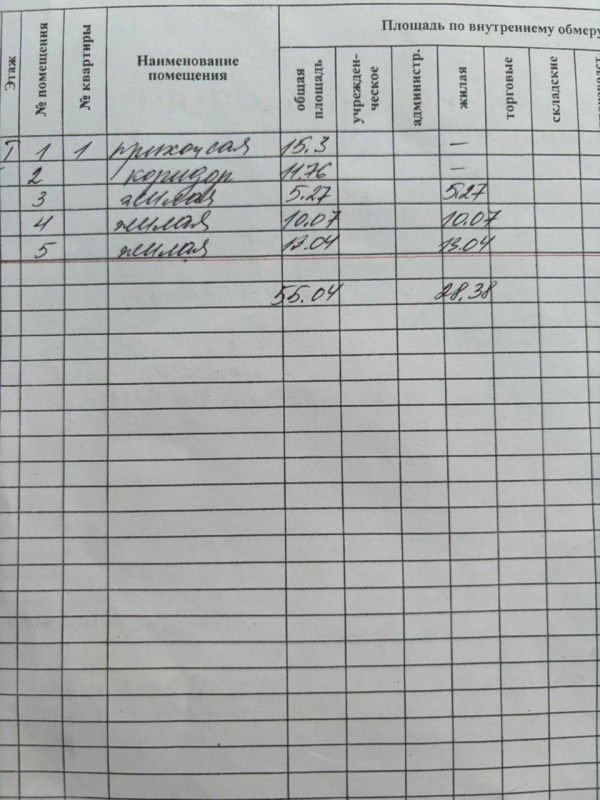 Площадь по внутреннему обмеру
Этаж
№ помещения
№ квартиры
Наименование помещения
общая площадь
учрежден-ческое
администр.
жилая
торговые
складские
I 1 1 прихожая 15.3 —
2 коридор 11.76 —
3 жилая 5.27 5.27
4 жилая 10.07 10.07
5 жилая 13.04 13.04
55.04 28.38